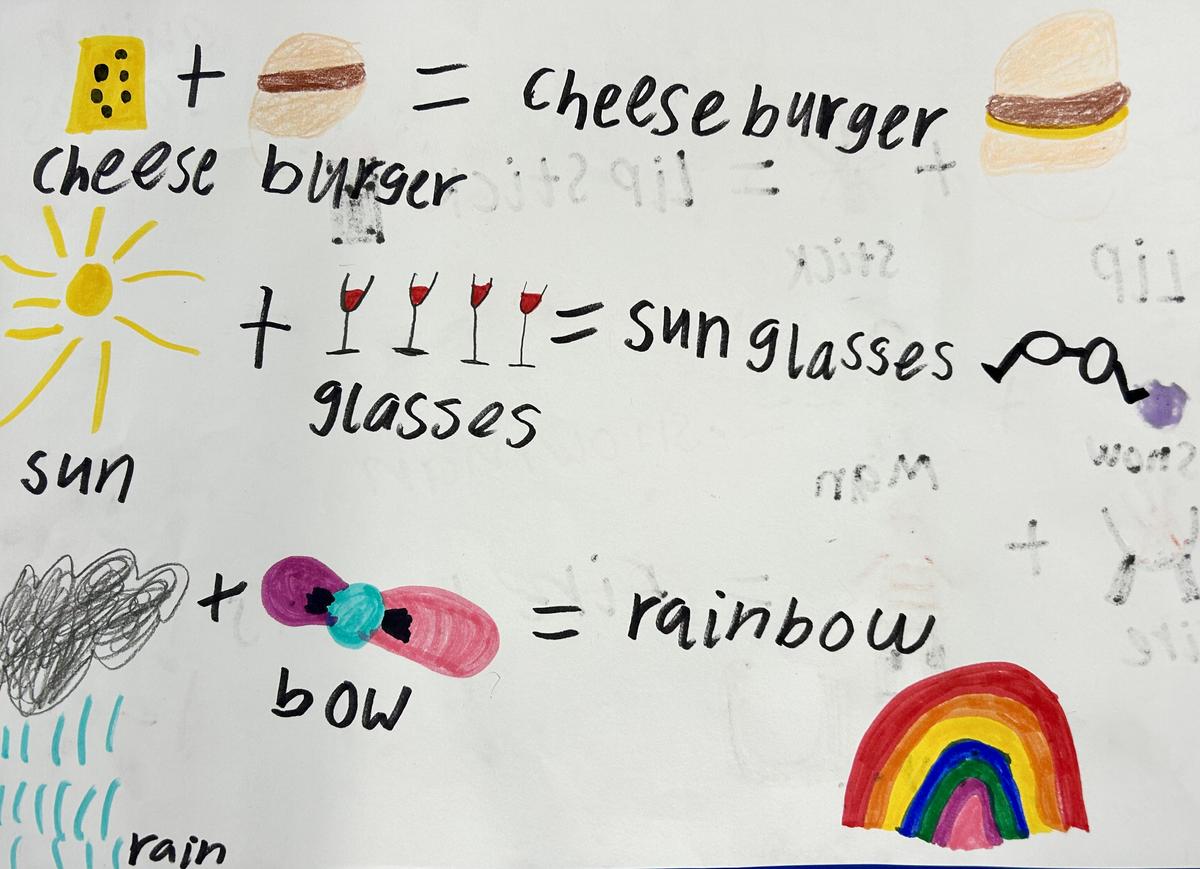 + = cheeseburger
cheese burger
+ = sunglasses
glasses
sun
+ = rainbow
bow
rain